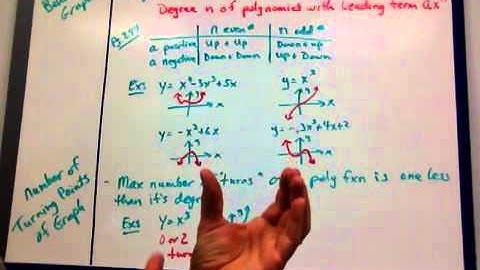 Degree n of polynomial with leading term axⁿ
Graph
n even
n odd
a positive
Up + Up
Down + Up
a negative
Down + Down
Up + Down
Exs
y = x⁴-3x³+5x
y = x³
x
x
y = -x²+6x
y = -.3x³+4x+2
x
x
Number of
Turning Points
of Graph
- Max number "turns" poly fxn is one less
than it's
Exs
y = x³
0 or 2